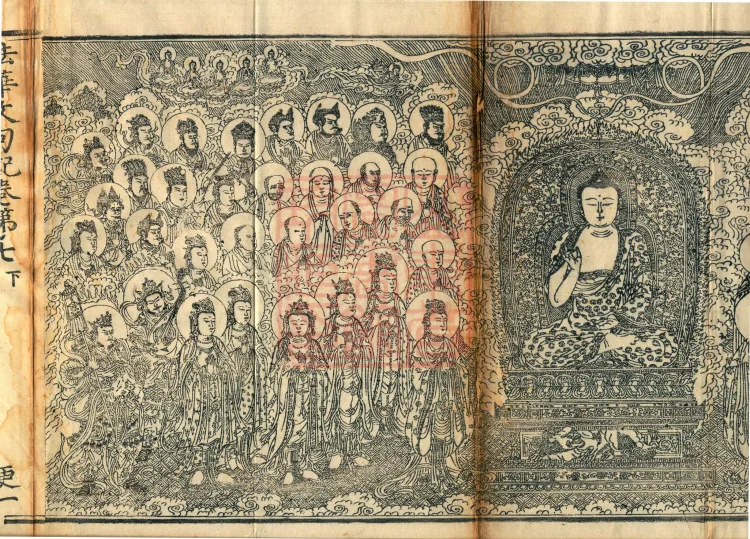 法華文句記卷第七 下
更一